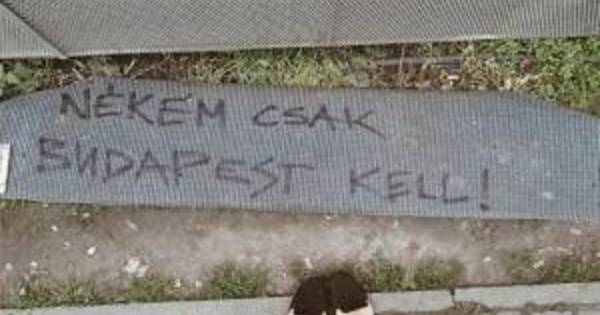 NÉKEM CSAK
BUDAPEST KELL!